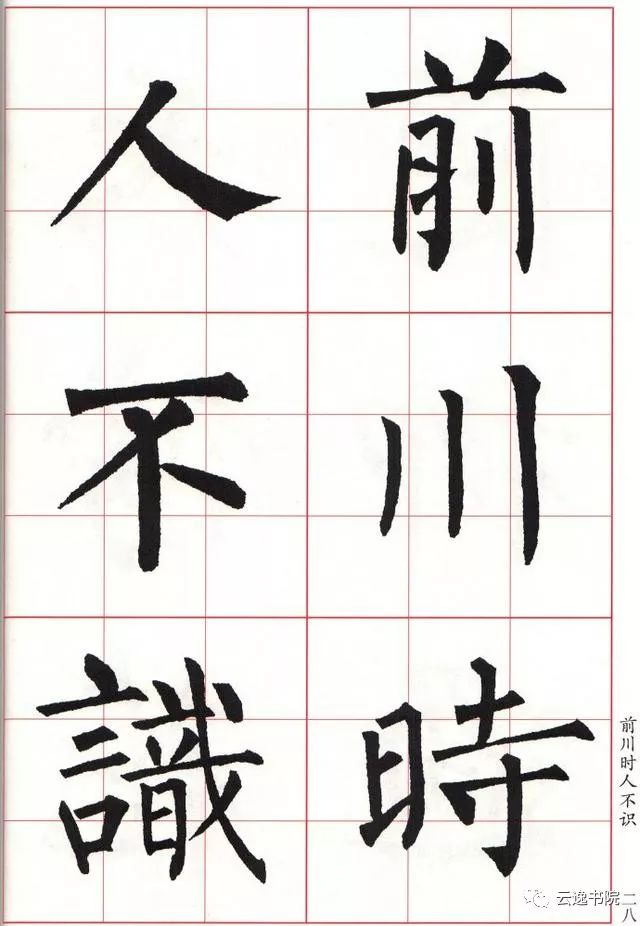 前川時
人不識
前川时人不识
二八
云逸书院